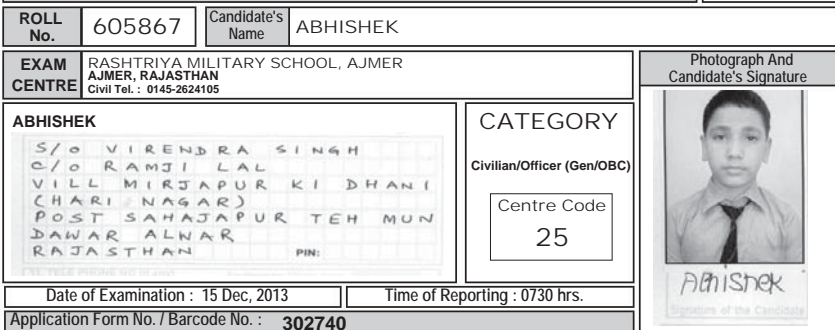 ROLL No. 605867 Candidate's Name ABHISHEK
EXAM CENTRE RASHTRIYA MILITARY SCHOOL, AJMER
AJMER, RAJASTHAN
Civil Tel. : 0145-2624105
Photograph And Candidate's Signature
ABHISHEK
S/o VIRENDRA SINGH
C/o RAMJI LAL
VILL MIRJAPUR KI DHANI
(HARI NAGAR)
POST SAHAJAPUR TEH MUN
DAWAR ALWAR
RAJASTHAN PIN:
CATEGORY
Civilian/Officer (Gen/OBC)
Centre Code
25
Abhishek
Signature of the Candidate
Date of Examination : 15 Dec, 2013 Time of Reporting : 0730 hrs.
Application Form No. / Barcode No. : 302740